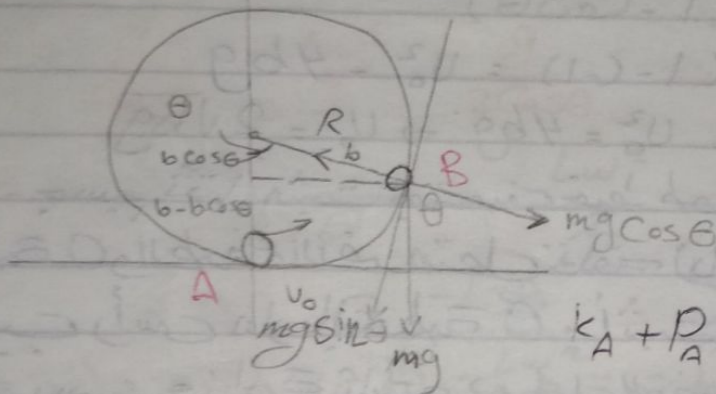 θ
R
b cosθ
b
B
b-bcosθ
θ
mg cos θ
A
v₀
mg sin θ
mg
K_A + P_A